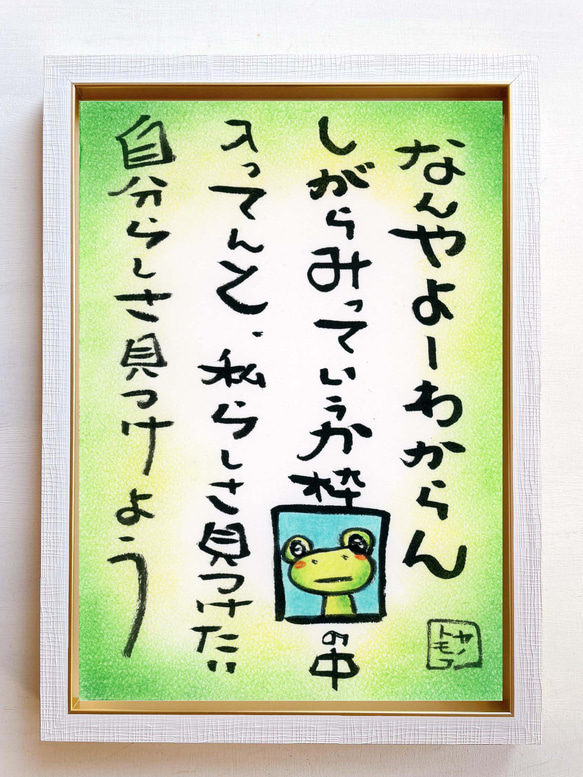 なんやよーわからん
しがらみっていうか枠の中
入ってんと、私らしさ見つけたい
自分らしさ見つけよう
ヤノ
トモコ